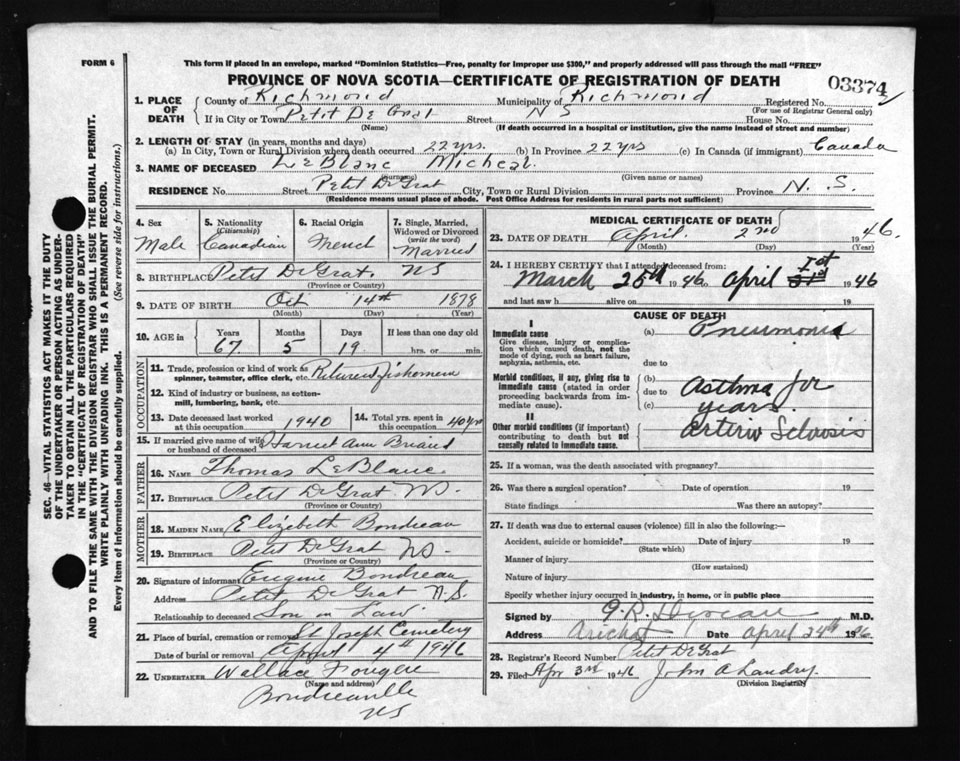 FORM 6
This form if placed in an envelope, marked "Dominion Statistics—Free, penalty for improper use $300," and properly addressed will pass through the mail "FREE"
PROVINCE OF NOVA SCOTIA—CERTIFICATE OF REGISTRATION OF DEATH
03374
1. PLACE OF DEATH
County of Richmond Municipality of Richmond Registered No.
(For use of Registrar General only)
If in City or Town Petit De Grat Street N S House No.
(Name) (If death occurred in a hospital or institution, give the name instead of street and number)
2. LENGTH OF STAY (in years, months and days)
(a) In City, Town or Rural Division where death occurred 22 yrs. (b) In Province 22 yrs (c) In Canada (if immigrant) Canada
3. NAME OF DECEASED LeBlanc Micheal.
(Surname) (Given name or names)
RESIDENCE No. Street Petit De Grat City, Town or Rural Division Province N. S.
(Residence means usual place of abode. Post Office Address for residents in rural parts not sufficient)
4. Sex
Male
5. Nationality
(Citizenship)
Canadian
6. Racial Origin
French
7. Single, Married, Widowed or Divorced
(write the word)
Married
8. BIRTHPLACE Petit De Grat. NS
(Province or Country)
9. DATE OF BIRTH Oct 14th 1878
(Month) (Day) (Year)
10. AGE in
Years Months Days If less than one day old
67 5 19 hrs. or min.
OCCUPATION
11. Trade, profession or kind of work as spinner, teamster, office clerk, etc. Fishomen
12. Kind of industry or business, as cotton-mill, lumbering, bank, etc.
13. Date deceased last worked at this occupation 1940
14. Total yrs. spent in this occupation 40 yrs
15. If married give name of wife or husband of deceased Harriet Ann Briand
FATHER
16. NAME Thomas LeBlanc
17. BIRTHPLACE Petit De Grat NS.
(Province or Country)
MOTHER
18. MAIDEN NAME Elizebeth Boudreau
19. BIRTHPLACE Petit De Grat NS.
(Province or Country)
20. Signature of informant Eugene Boudreau
Address Petit De Grat N.S.
Relationship to deceased Son in Law.
21. Place of burial, cremation or removal St Joseph Cemetery
Date of burial or removal April 4th 1946
22. UNDERTAKER Wallace Fougere
(Name and address)
Boudreauville
NS
MEDICAL CERTIFICATE OF DEATH
23. DATE OF DEATH April 2nd 1946.
(Month) (Day) (Year)
24. I HEREBY CERTIFY that I attended deceased from:
March 25th 1946 to April 1st 1946
and last saw h alive on 19
CAUSE OF DEATH
I
Immediate cause
Give disease, injury or complication which caused death, not the mode of dying, such as heart failure, asphyxia, asthenia, etc.
(a) Pneumonia
due to
Morbid conditions, if any, giving rise to immediate cause (stated in order proceeding backwards from immediate cause).
(b) Asthma for
due to
(c) years.
II
Other morbid conditions (if important) contributing to death but not causally related to immediate cause.
Arterio Sclrosis
25. If a woman, was the death associated with pregnancy?
26. Was there a surgical operation? Date of operation 19
State findings Was there an autopsy?
27. If death was due to external causes (violence) fill in also the following:—
Accident, suicide or homicide? Date of injury 19
(State which)
Manner of injury
(How sustained)
Nature of injury
Specify whether injury occurred in industry, in home, or in public place
Signed by M.D.
Address Arichat Date April 24th 1946.
28. Registrar's Record Number Petit De Grat
29. Filed Apr 3rd 1946 John A Landry.
(Division Registrar)
SEC. 46—VITAL STATISTICS ACT MAKES IT THE DUTY
OF THE UNDERTAKER OR PERSON ACTING AS UNDER-
TAKER TO OBTAIN ALL THE PARTICULARS REQUIRED
IN THE "CERTIFICATE OF REGISTRATION OF DEATH"
AND TO FILE THE SAME WITH THE DIVISION REGISTRAR WHO SHALL ISSUE THE BURIAL PERMIT.
WRITE PLAINLY WITH UNFADING INK. THIS IS A PERMANENT RECORD.
Every item of information should be carefully supplied. (See reverse side for instructions.)